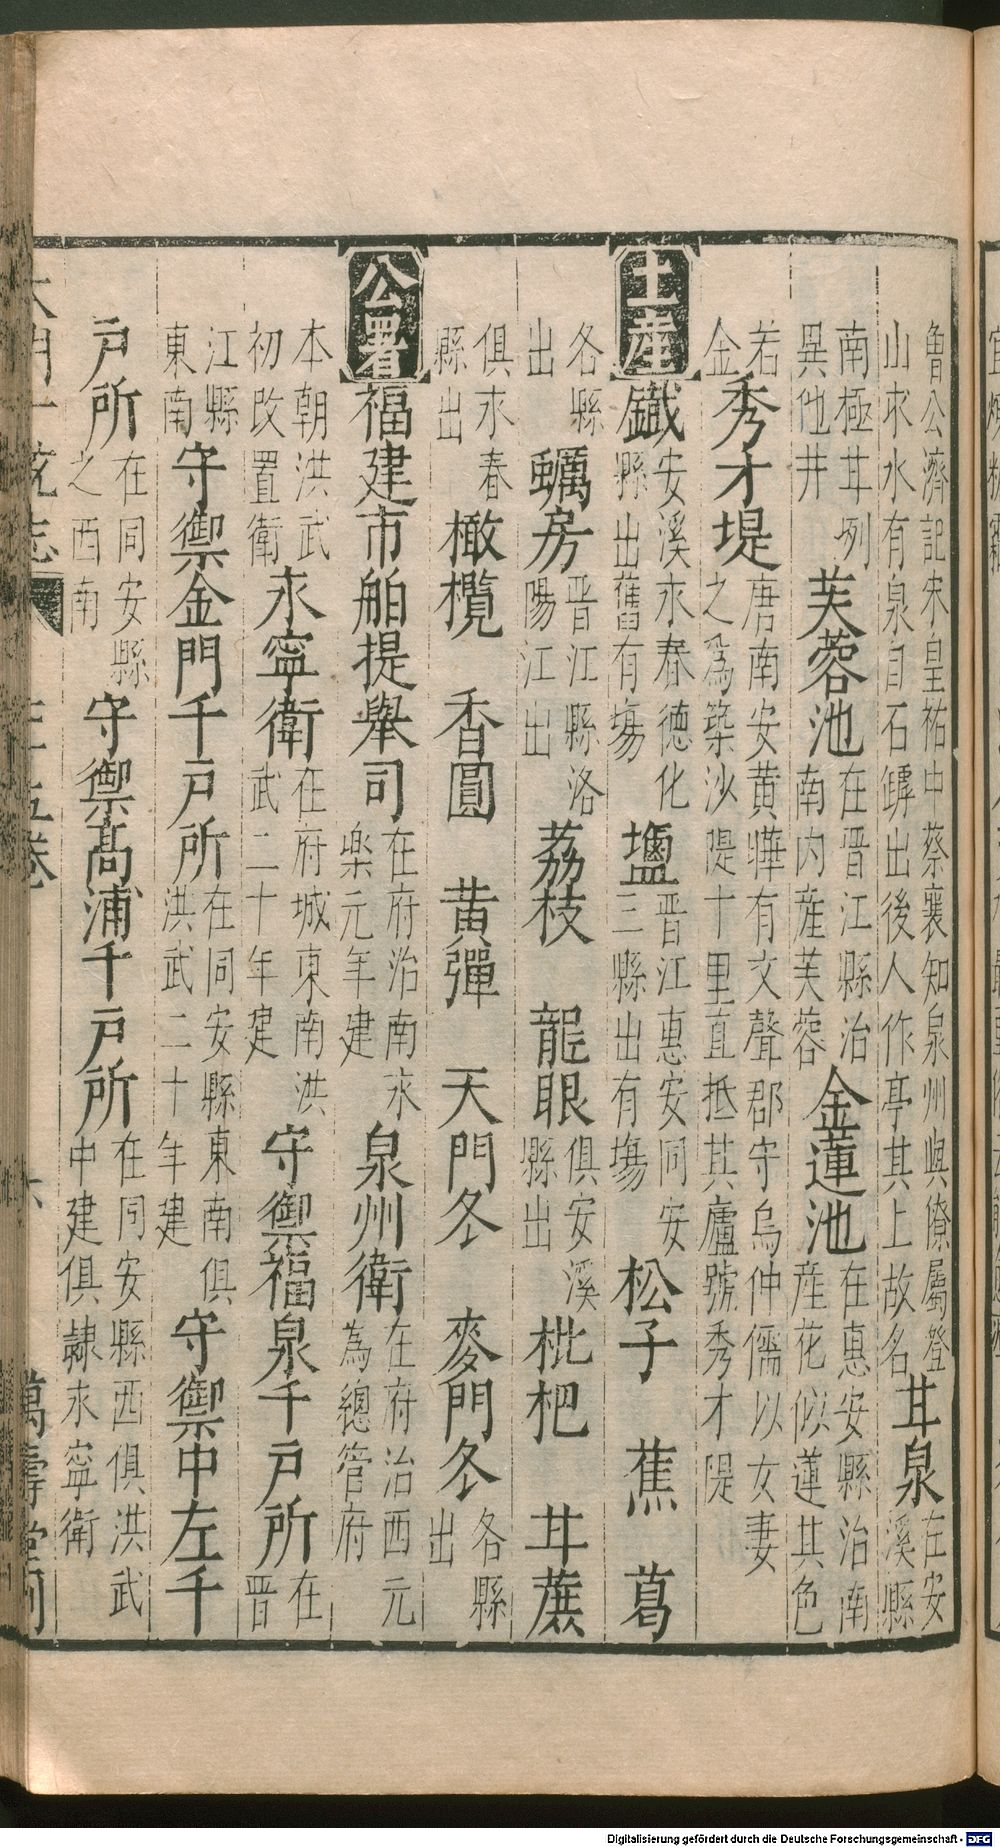 魯公濟記宋皇祐中蔡襄知泉州嶼僚屬登山求水有泉自石罅出後人作亭其上故名甘泉在安溪縣
南極甘冽異他井芙蓉池在晋江縣治南内産芙蓉金蓮池在惠安縣治南産花似蓮其色
若金秀才堤唐南安黄曄有文聲郡守烏仲儒以女妻之爲築沙隄十里直抵其廬號秀才隄
土産鐵安溪永春德化縣出舊有塲鹽晋江惠安同安三縣出有塲松子 蕉 葛
各縣出蠣房晋江縣洛陽江出荔枝 龍眼俱安溪縣出枇杷 甘蔗
俱永春縣出橄欖 香圓 黄彈 天門冬 麥門冬各縣出
公署福建市舶提舉司在府治南永樂元年建泉州衛在府治西元為總管府
本朝洪武初改置衛永寧衛在府城東南洪武二十年建守禦福泉千戸所在晋
江縣東南守禦金門千戸所在同安縣東南俱洪武二十年建守禦中左千
戸所在同安縣之西南守禦高浦千戸所在同安縣西俱洪武中建俱隷永寧衛
大明一統志 卷 六 萬壽堂刊
Digitalisierung gefördert durch die Deutsche Forschungsgemeinschaft - DFG